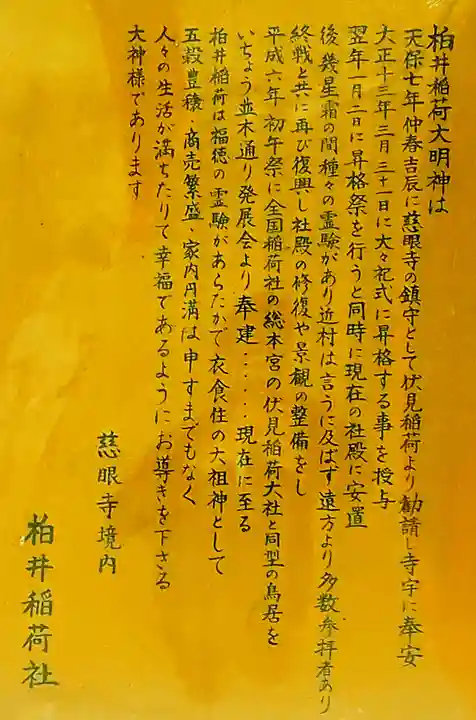 柏井稲荷大明神は
天保七年仲春吉辰に慈眼寺の鎮守として伏見稲荷より勧請し寺宇に奉安
大正十三年三月三十一日に大々祀式に昇格する事を授与
翌年一月二日に昇格祭を行うと同時に現在の社殿に安置
後幾星霜の間種々の霊験があり近村は言うに及ばず遠方より多数参拝者あり
終戦と共に再び復興し社殿の修復や景観の整備をし
平成六年初午祭に全国稲荷社の総本宮の伏見稲荷大社と同型の鳥居を
いちょう並木通り発展会より奉建・・・・・現在に至る
柏井稲荷は福徳の霊験があらたかで衣食住の大祖神として
五穀豊穣、商売繁盛、家内円満は申すまでもなく
人々の生活が満ちたりて幸福であるようにお導きを下さる
大神様であります
慈眼寺境内
柏井稲荷社